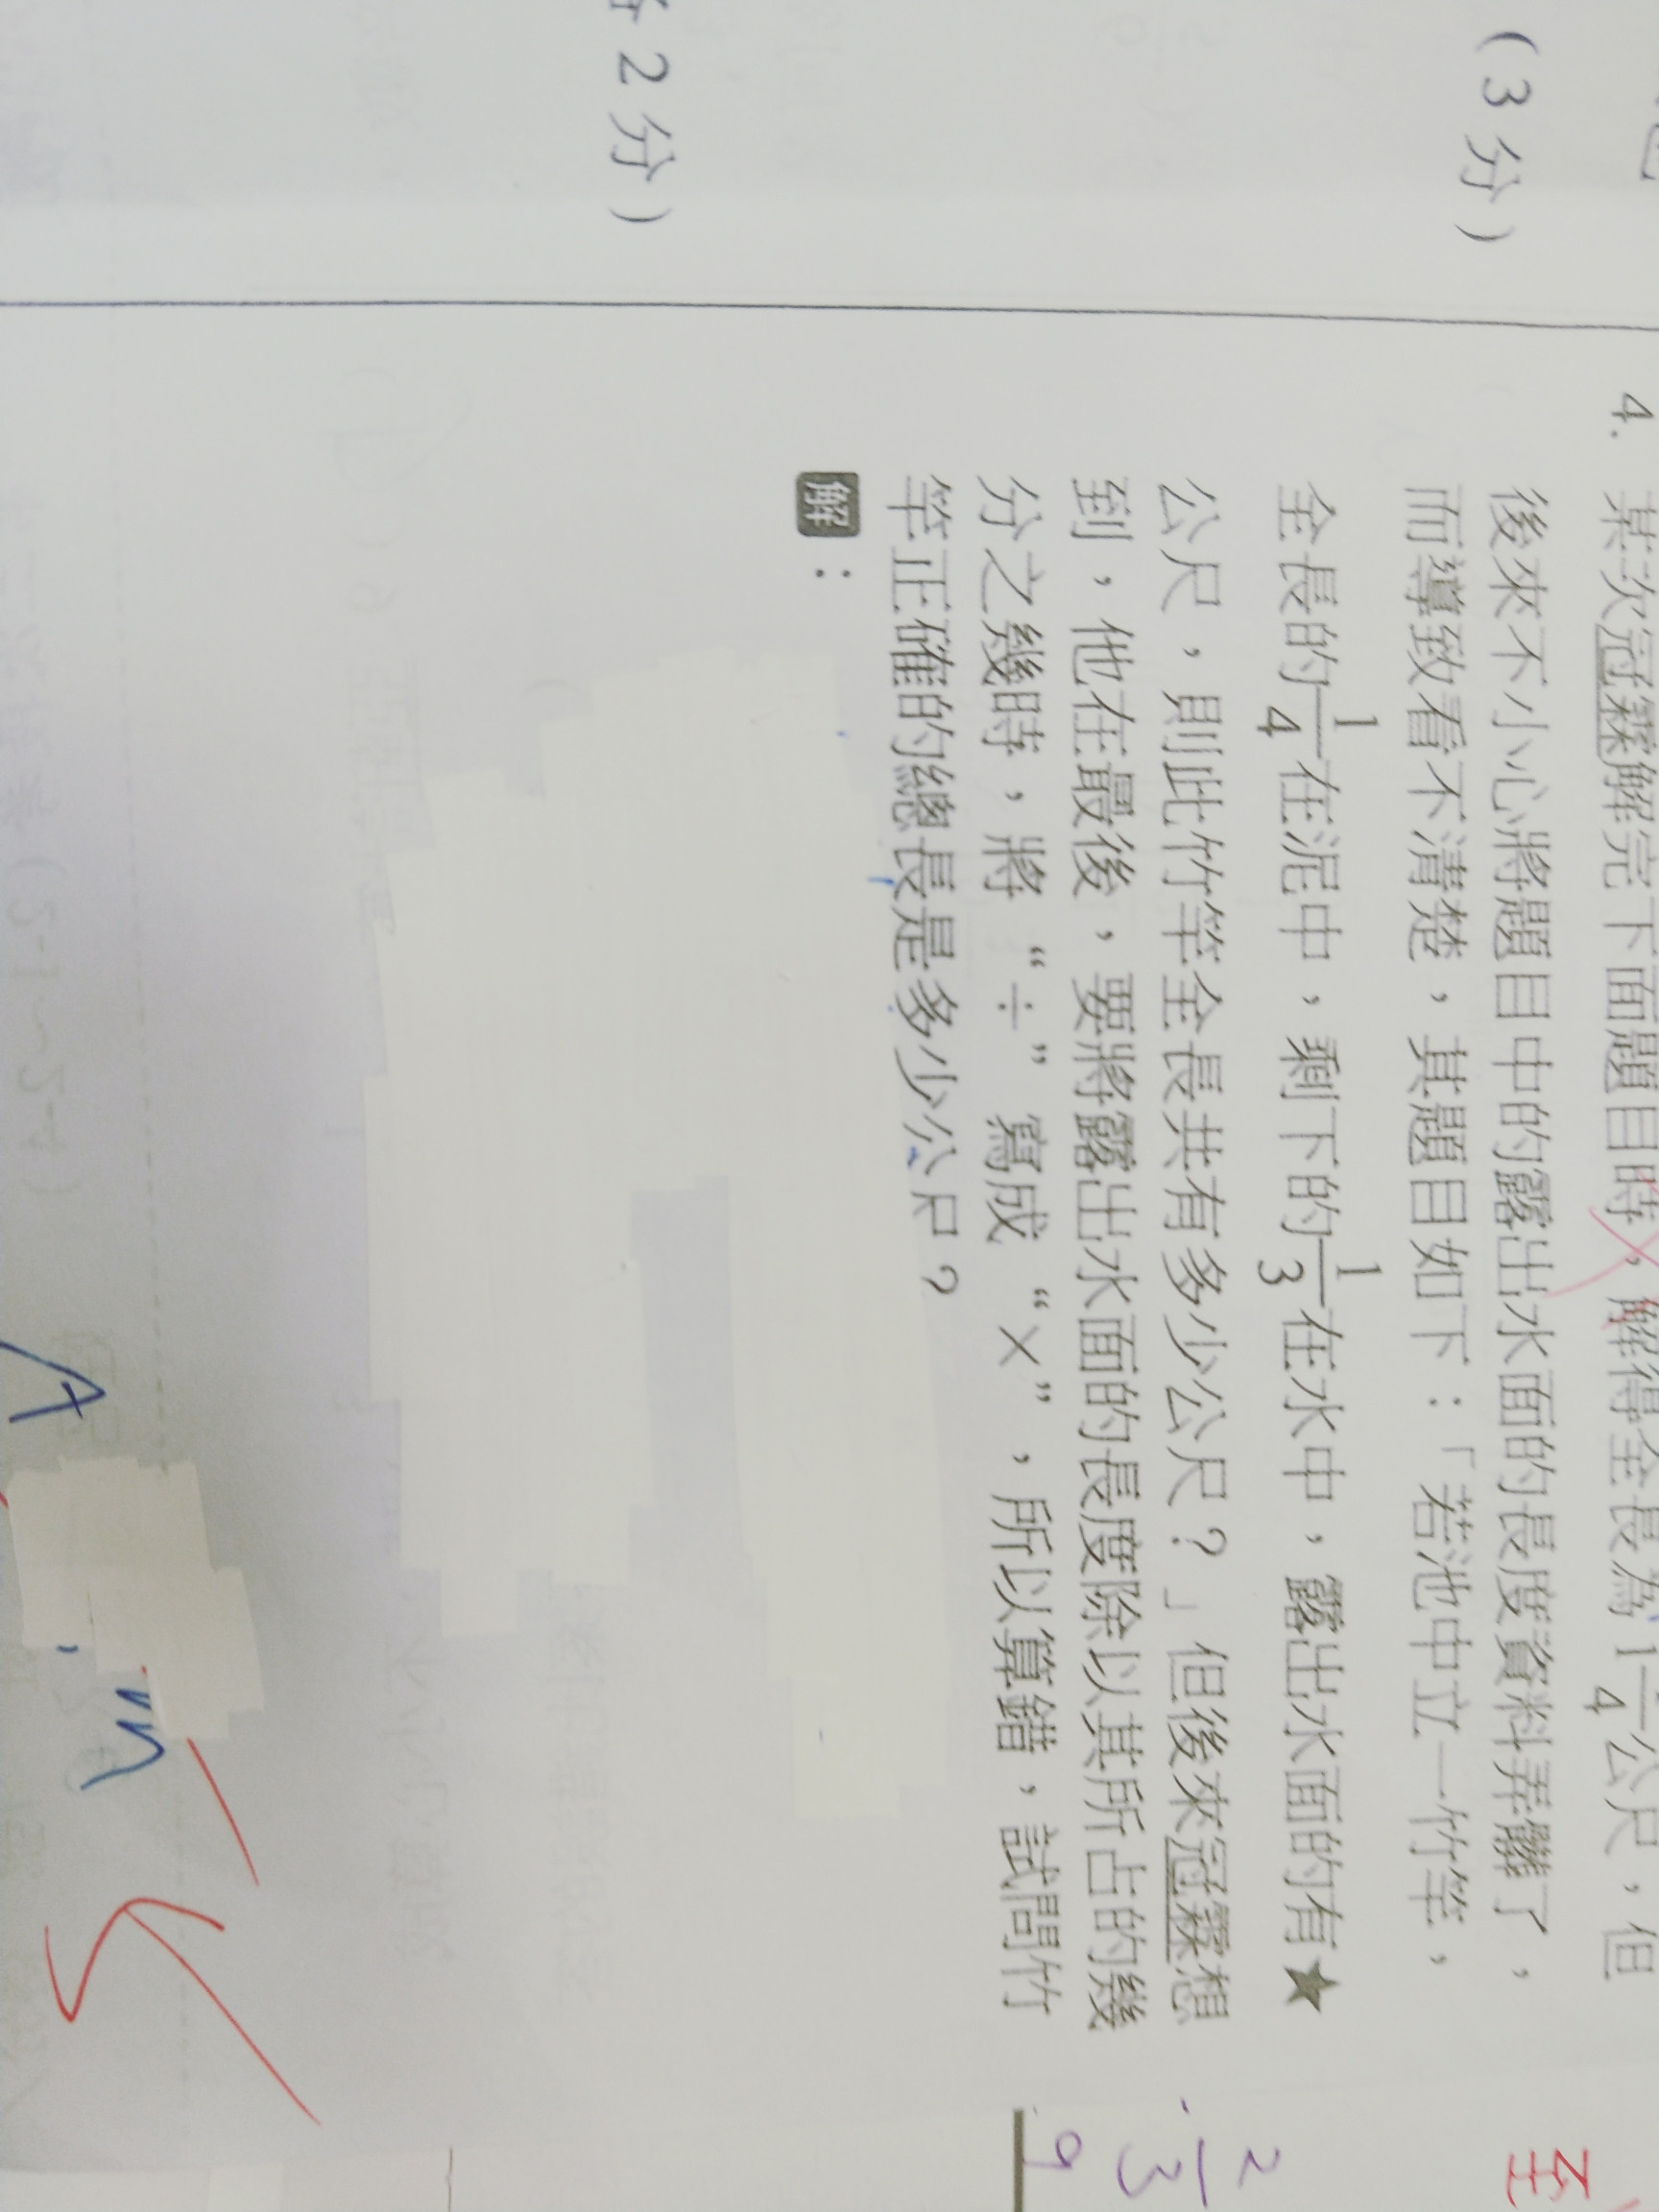 (3分)
2分)
4. 某次冠霖解完下面題目時，解得全長為1 /4公尺，但
後來不小心將題目中的露出水面的長度資料弄髒了，
而導致看不清楚，其題目如下：「若池中立一竹竿，
全長的1/4在泥中，剩下的1/3在水中，露出水面的有★
公尺，則此竹竿全長共有多少公尺？」但後來冠霖想
到，他在最後，要將露出水面的長度除以其所占的幾
分之幾時，將“÷”寫成“×”，所以算錯，試問竹
竿正確的總長是多少公尺？
解：
A
m
2/3
9
至